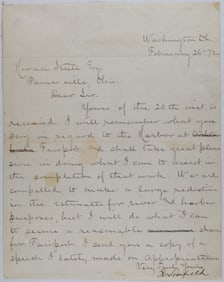 Washington D.C.
February 26-72
Horace Steele Esq
Painesville, Ohio.
Dear Sir.
Yours of the 20th inst is
received I will remember what you
say in regard to the Harbor at
Fairport, and shall take great pleas
ure in doing what I can to assist in
the completion of that work. We are
compelled to make a large reduction
in the estimates for river and harbor
purposes, but I will do what I can
to secure a reasonable share
for Fairport. I send you a copy of a
speech I lately made on Appropriations
Very Truly Yours
J. A. Garfield